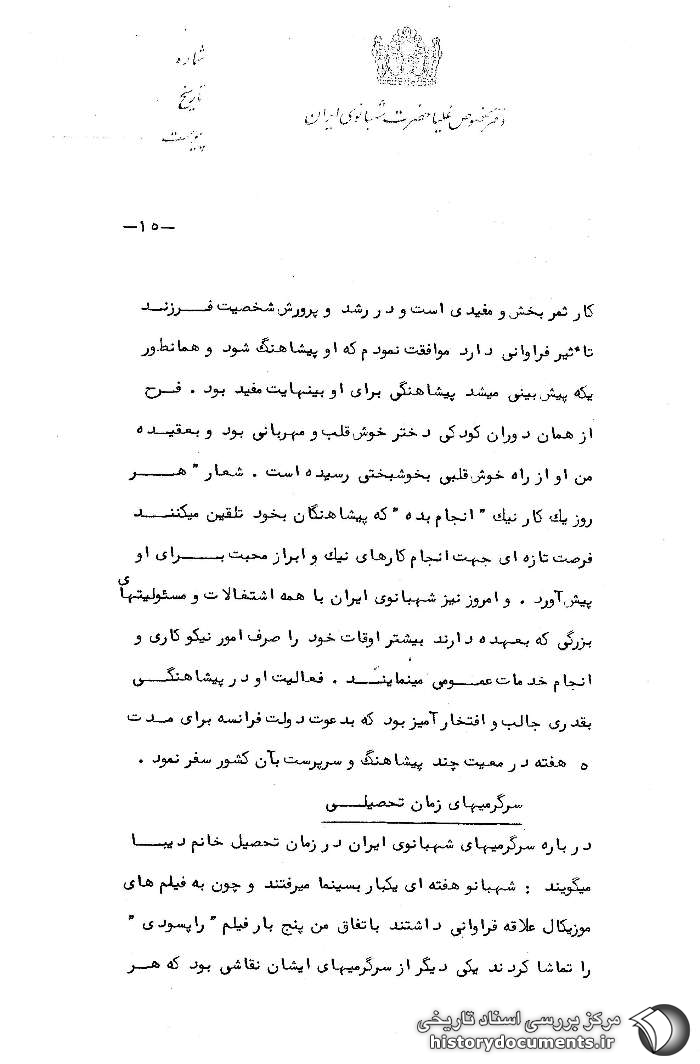 شماره
تاریخ
پیوست
دفتر مخصوص علیاحضرت شهبانوی ایران
-۱۵-
کار ثمر بخش و مفیدی است و در رشد و پرورش شخصیت فرزند
تاءثیر فراوانی دارد موافقت نمودم که او پیشاهنگ شود و همانطور
یکه پیش بینی میشد پیشاهنگی برای او بینهایت مفید بود . فرح
از همان دوران کودکی دختر خوش قلب و مهربانی بود و بعقیده
من او از راه خوش قلبی بخوشبختی رسیده است . شعار " هر
روز یك کار نیك " انجام بده " که پیشاهنگان بخود تلقین میکنند
فرصت تازه ای جهت انجام کارهای نیك و ابراز محبت برای او
پیش آورد . و امروز نیز شهبانوی ایران با همه اشتغالات و مسئولیتهای
بزرگی که بعهده دارند بیشتر اوقات خود را صرف امور نیکوکاری و
انجام خدمات عمومی مینمایند . فعالیت او در پیشاهنگی
بقدری جالب و افتخار آمیز بود که بدعوت دولت فرانسه برای مدت
۵ هفته در معیت چند پیشاهنگ و سرپرست بآن کشور سفر نمود .
سرگرمیهای زمان تحصیلی
درباره سرگرمیهای شهبانوی ایران در زمان تحصیل خانم دیبا
میگویند : شهبانو هفته ای یکبار بسینما میرفتند و چون به فیلم های
موزیکال علاقه فراوانی داشتند باتفاق من پنج بار فیلم " راپسودی "
را تماشا کردند یکی دیگر از سرگرمیهای ایشان نقاشی بود که هر
مرکز بررسی اسناد تاریخی
historydocuments.ir